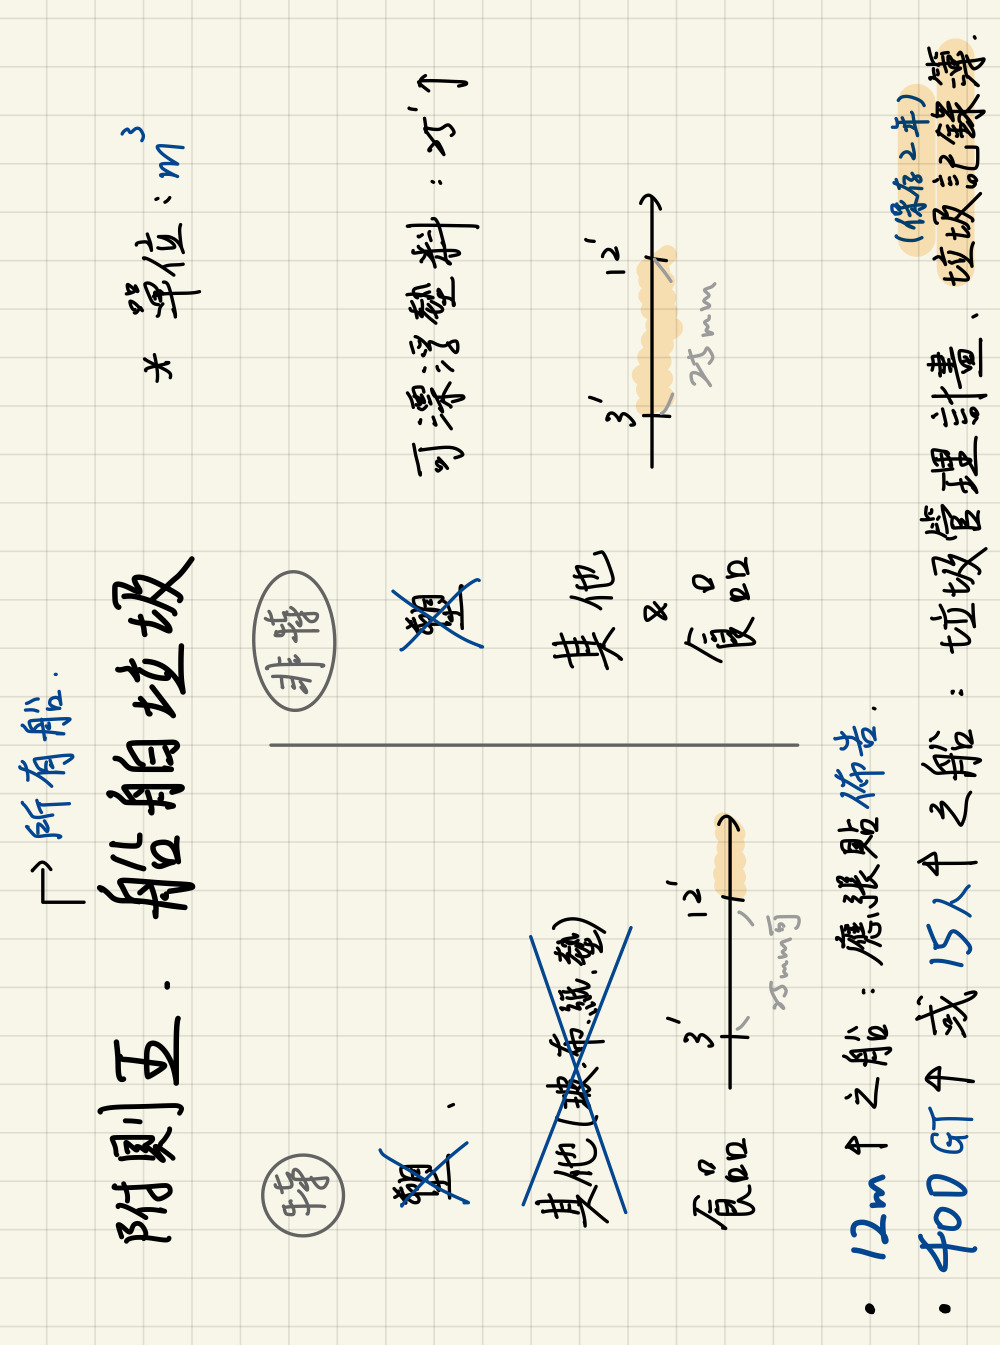 所有船.
附則五. 船舶垃圾
* 單位:m³
特
非特
塑
塑
可漂浮墊料:25'↑
其他(玻.布.紙.墊)
其他
&
食品
3' 12'
25mm
食品
3' 12'
25mm可
• 12m↑之船:應張貼佈告.
(保存2年)
• 400GT↑或15人↑之船:垃圾管理計畫、垃圾記錄簿.